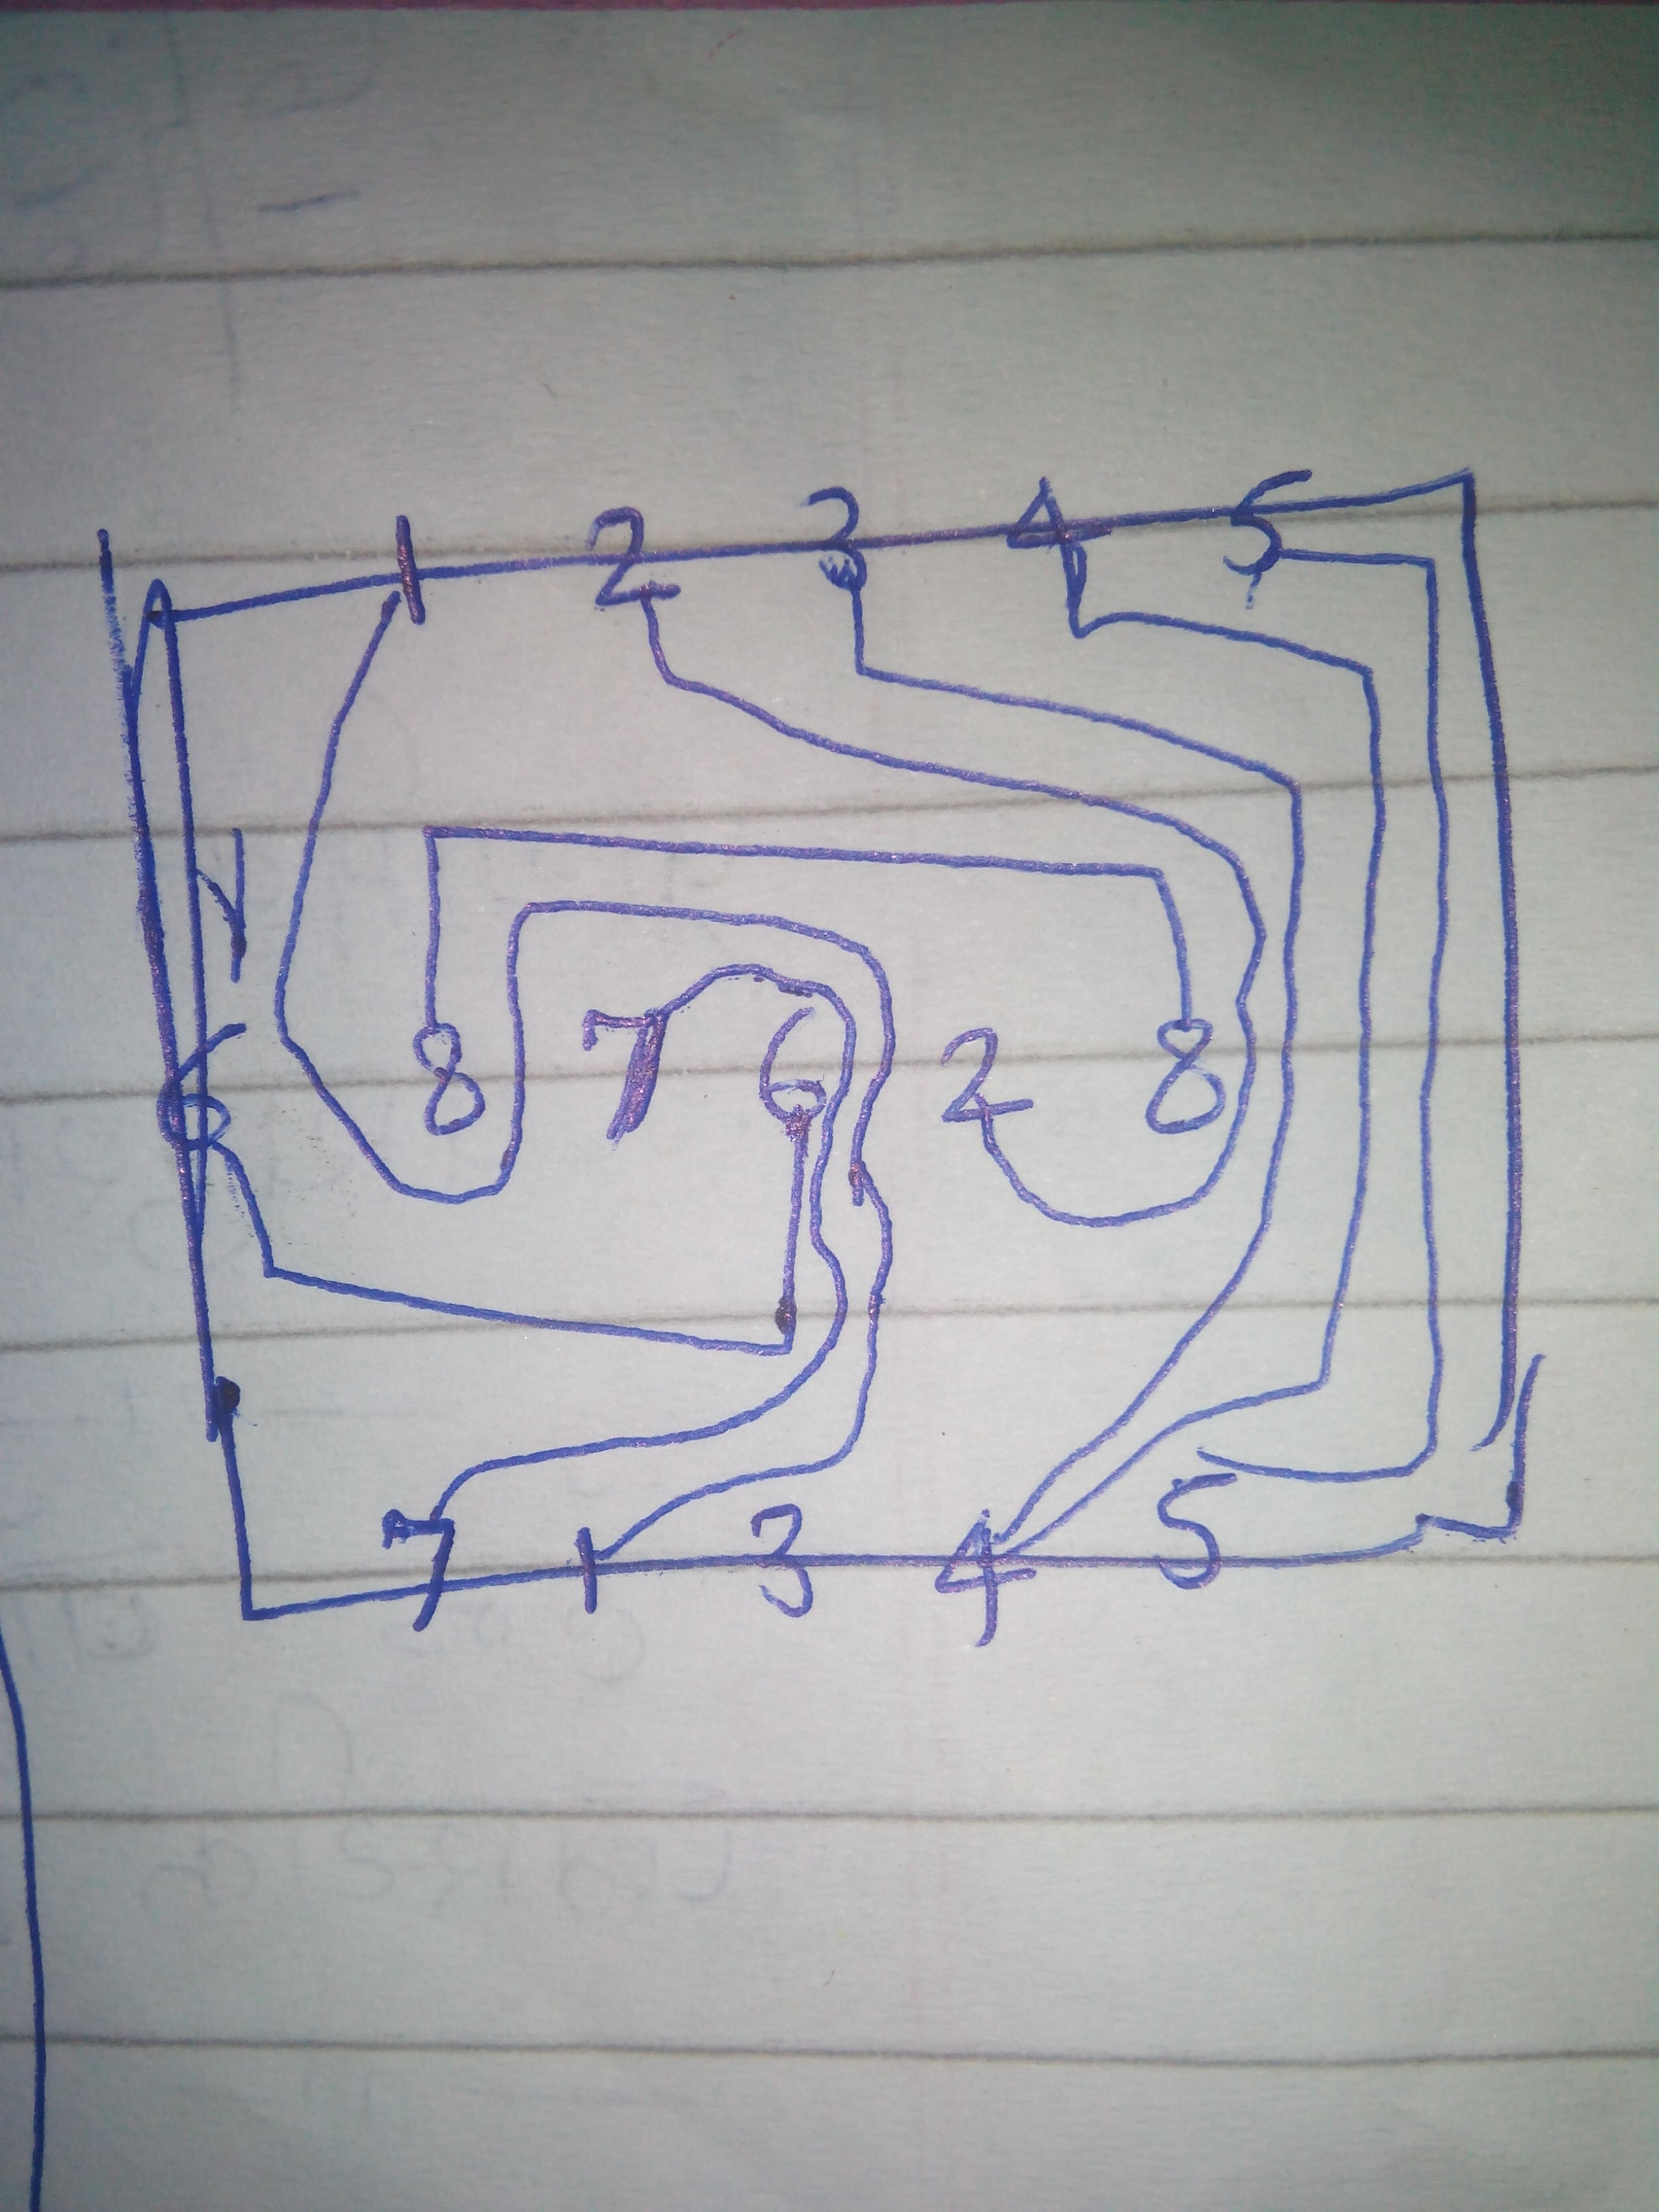 1 2 3 4 5
6 8 7 6 2 8
7 1 3 4 5